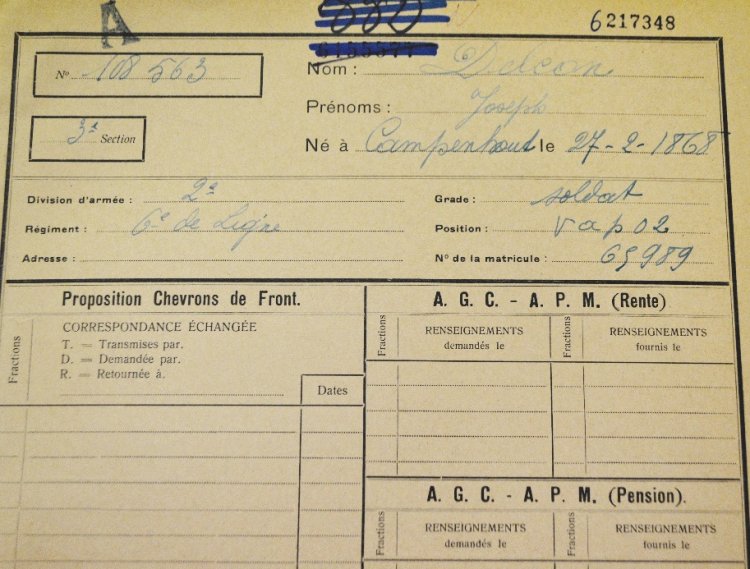 A
6217348
Nº 108 563
Nom :
Prénoms : Joseph
3e Section
Né à Campenhout le 27-2-1868
Division d'armée : 2e
Grade : soldat
Régiment : 6e de Ligne
Position :
Adresse :
Nº de la matricule : 65989
Proposition Chevrons de Front.
A. G. C. - A. P. M. (Rente)
Fractions
CORRESPONDANCE ÉCHANGÉE
T. = Transmises par.
D. = Demandée par.
R. = Retournée à.
Dates
Fractions
RENSEIGNEMENTS
demandés le
Fractions
RENSEIGNEMENTS
fournis le
A. G. C. - A. P. M. (Pension).
Fractions
RENSEIGNEMENTS
demandés le
Fractions
RENSEIGNEMENTS
fournis le